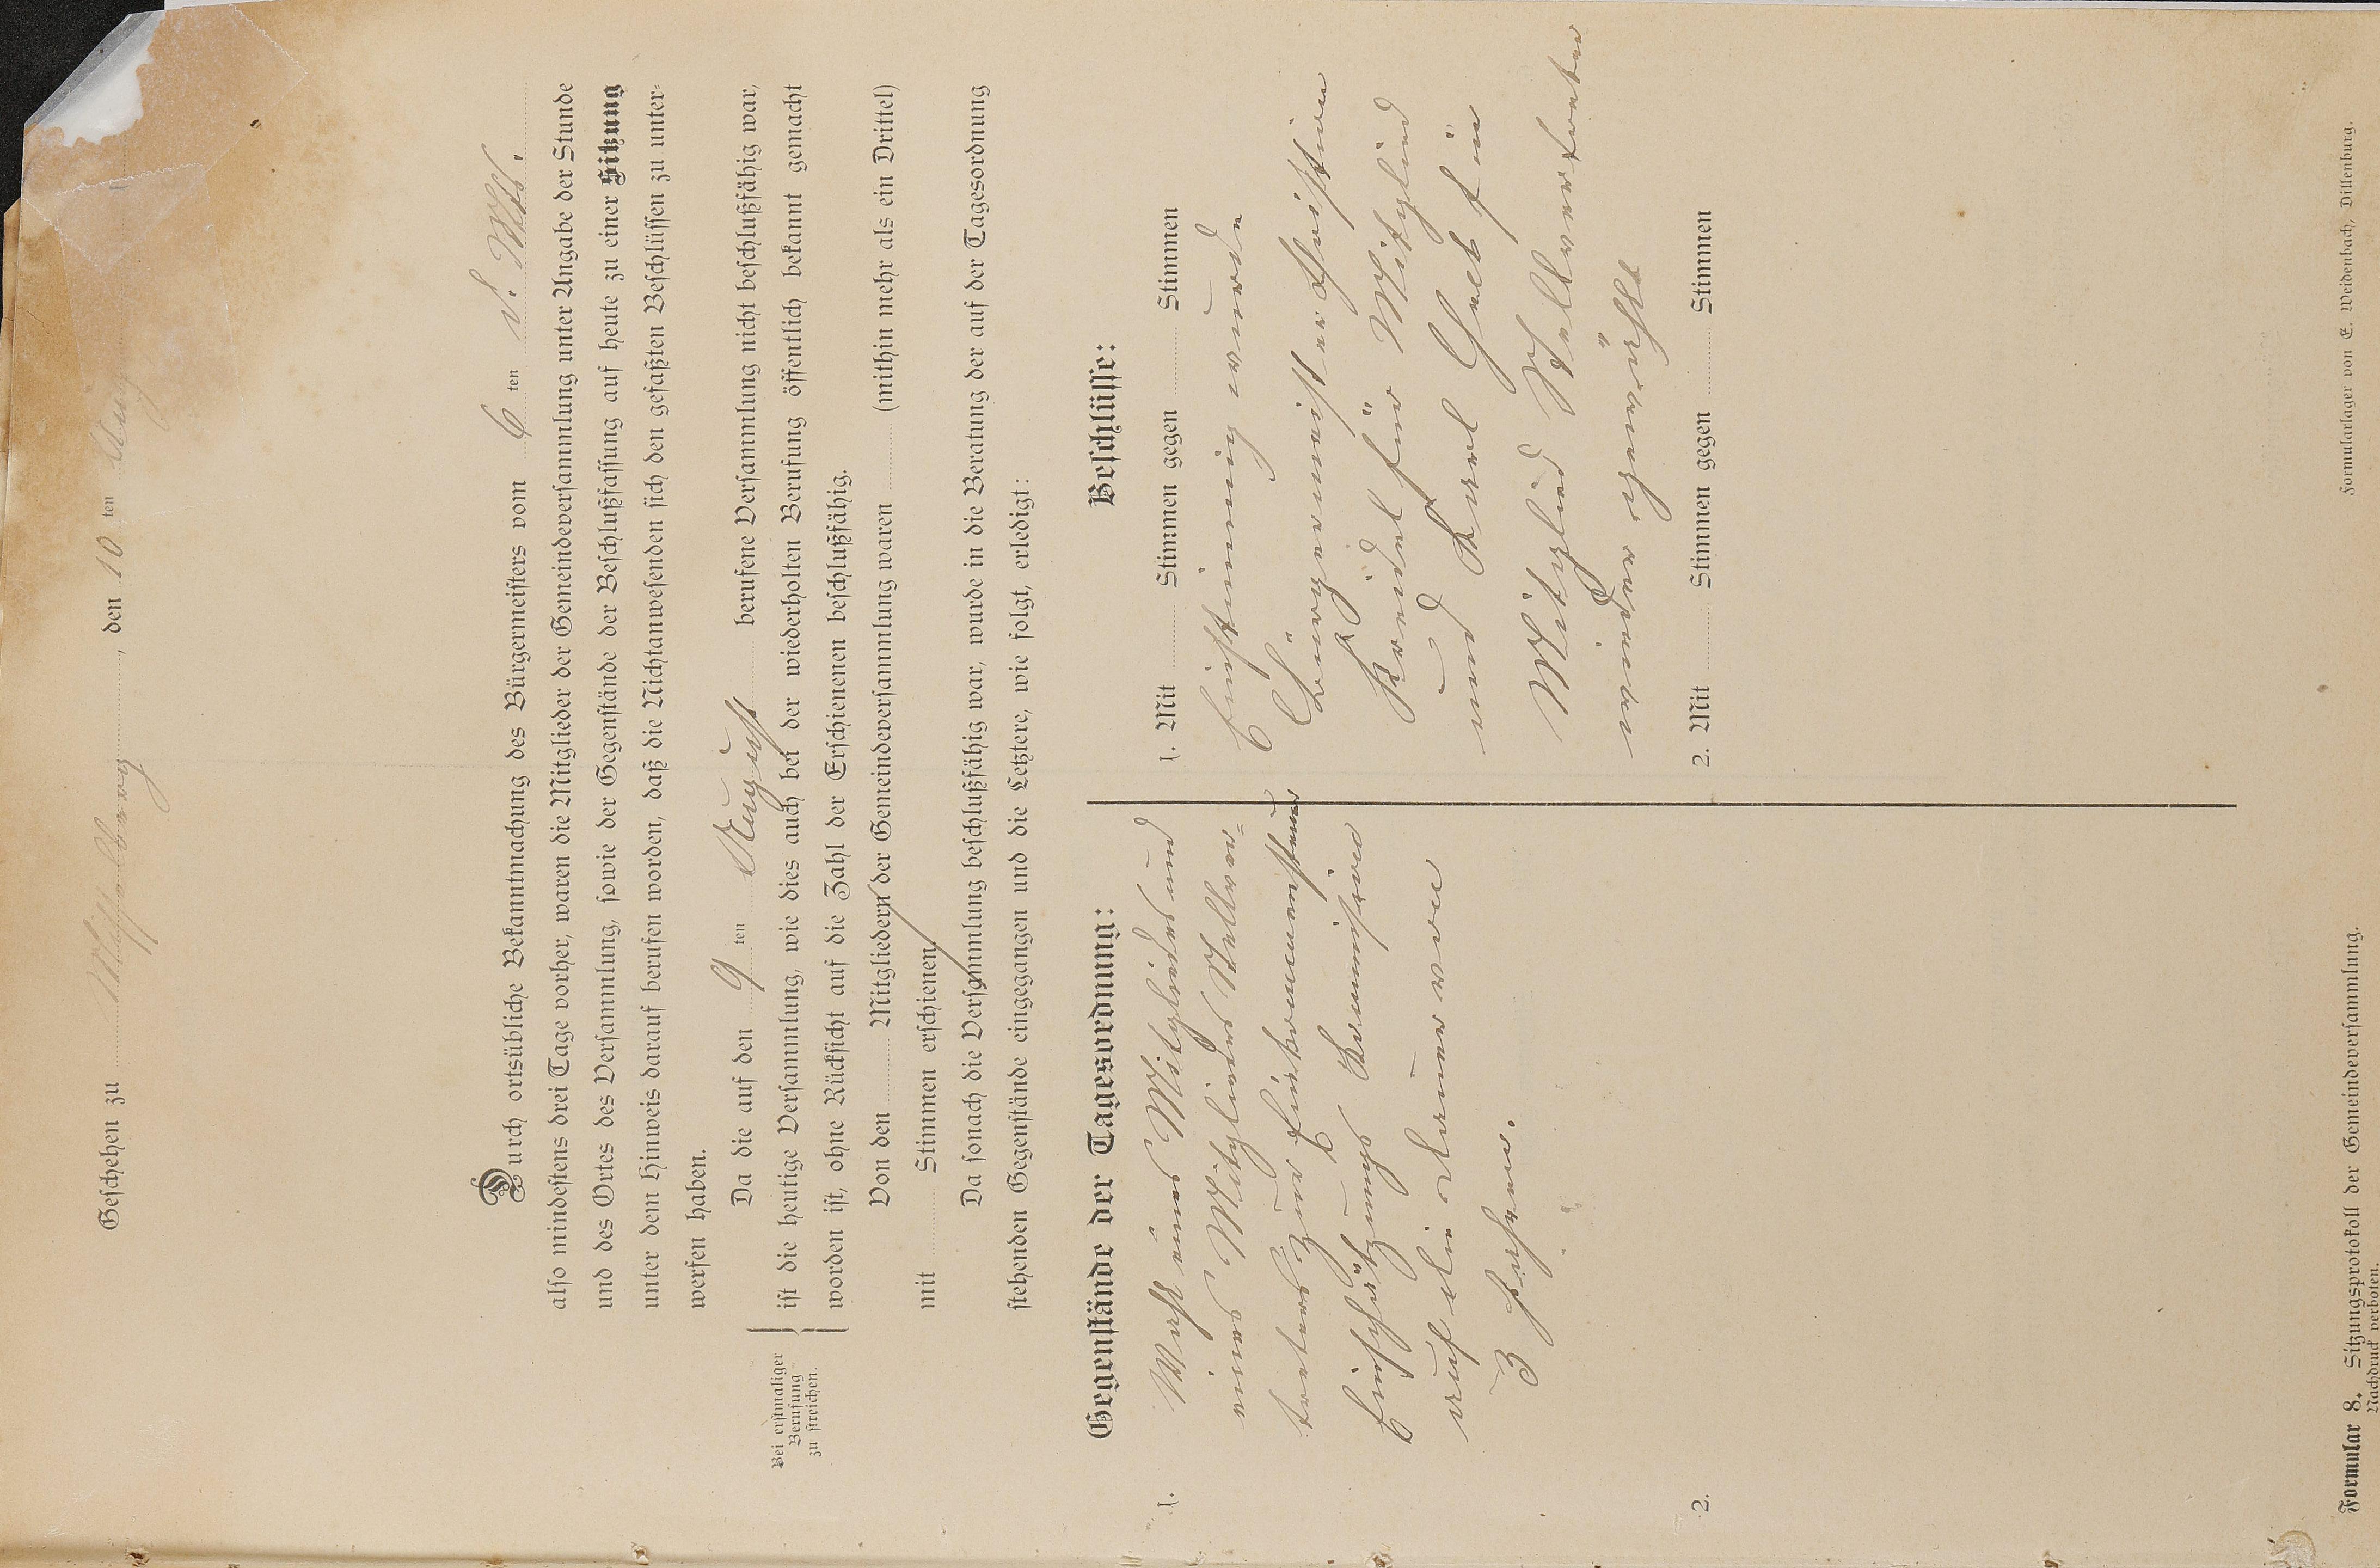 Geschehen zu, den 10 ten Aug
Durch ortsübliche Bekanntmachung des Bürgermeisters vom 6 ten d. Mts.
also mindestens drei Tage vorher, waren die Mitglieder der Gemeindeversammlung unter Angabe der Stunde
und des Ortes des Versammlung, sowie der Gegenstände der Beschlußfassung auf heute zu einer Sitzung
unter dem Hinweis darauf berufen worden, daß die Nichtanwesenden sich den gefaßten Beschlüssen zu unter-
werfen haben.
Da die auf den 9 ten August berufene Versammlung nicht beschlußfähig war,
ist die heutige Versammlung, wie dies auch bei der wiederholten Berufung öffentlich bekannt gemacht
worden ist, ohne Rücksicht auf die Zahl der Erschienenen beschlußfähig.
Bei erstmaliger
Berufung
zu streichen.
Von den Mitgliedern der Gemeindeversammlung waren (mithin mehr als ein Drittel)
mit Stimmen erschienen.
Da sonach die Versammlung beschlußfähig war, wurde in die Beratung der auf der Tagesordnung
stehenden Gegenstände eingegangen und die Letztere, wie folgt, erledigt:
Gegenstände der Tagesordnung:
1. Wahl eines Mitgliedes und
eines Mitgliedes Stellver=
treters zur Einkommensteuer
Einschätzungs Kommission
auf die Dauer von
3 Jahren.
2.
Beschlüsse:
1. Mit Stimmen gegen Stimmen
Einstimmig wurde
Bürgermeister Christian
für Mitglied
und Karl für
Mitglied Stellvertreter
gewählt
2. Mit Stimmen gegen Stimmen
Formular 8. Sitzungsprotokoll der Gemeindeversammlung.
Nachdruck verboten.
Formularlager von E. Weidenbach, Dillenburg.